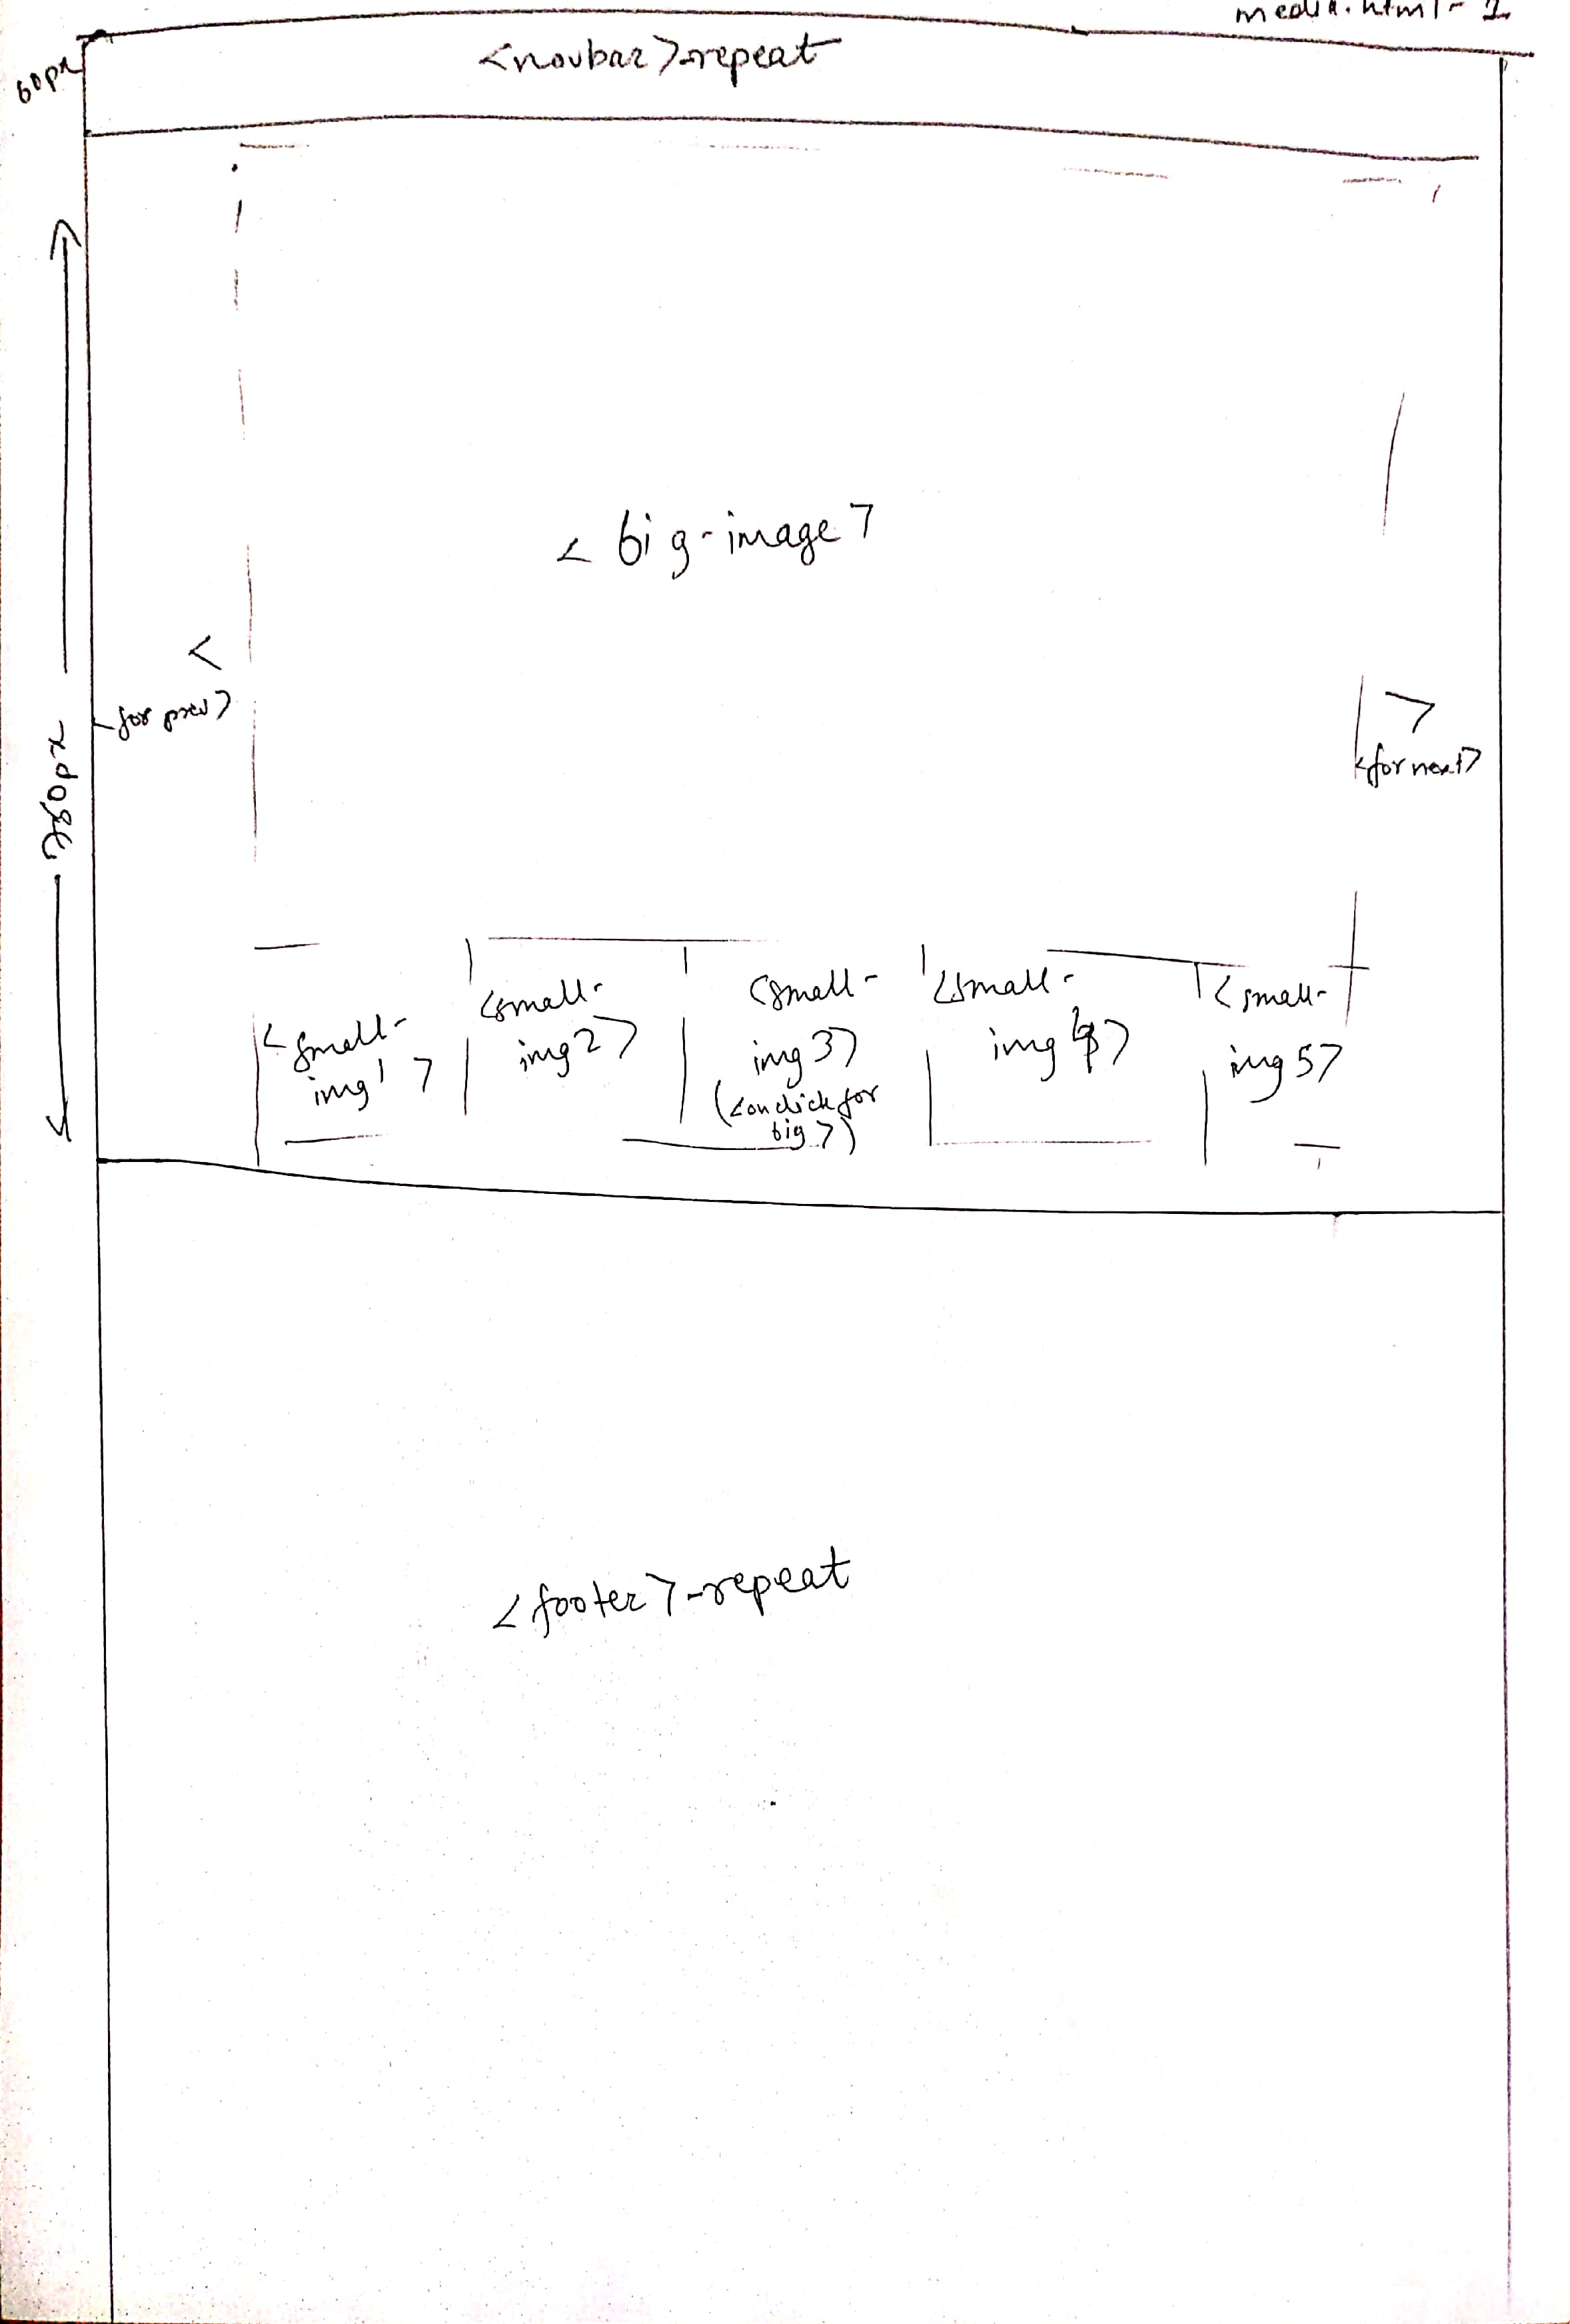 media.html - 1
60px
<navbar>-repeat
<big-image>
<
<for prev>
>
<for next>
<small-
img1>
<small-
img2>
<small-
img3>
(<onclick for
big>)
<small-
img4>
<small-
img5>
<footer>-repeat